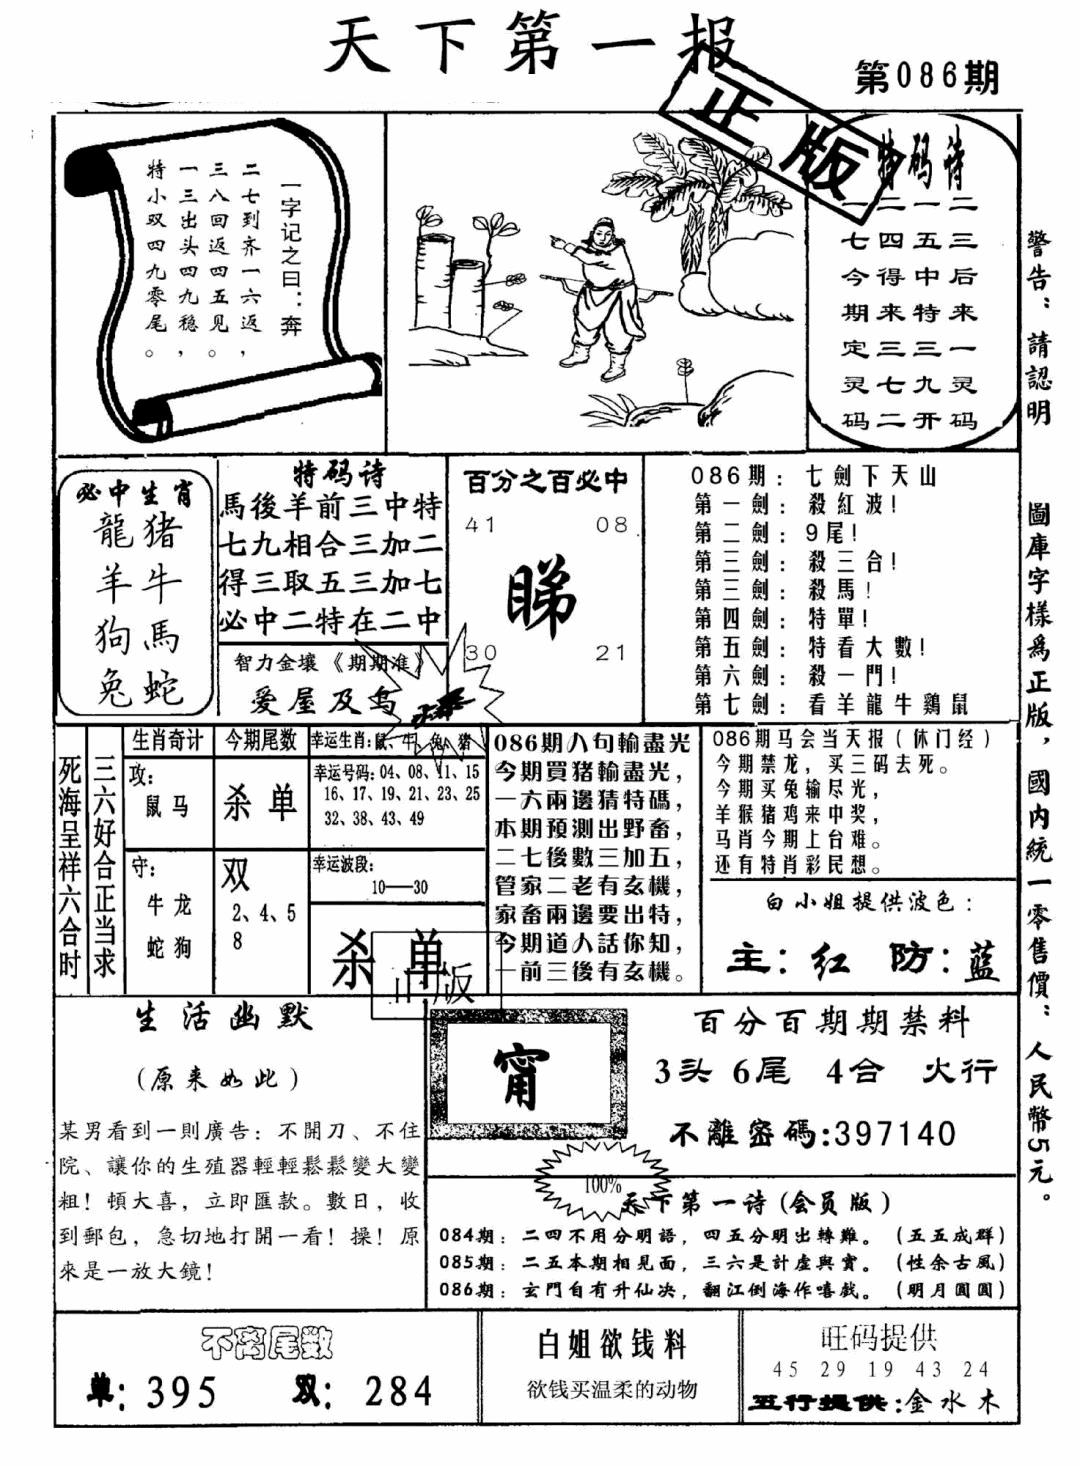 天下第一报
第086期
正版
一字记之曰：奔
二七到齐一六返，
三八回返四五见。
一三出头四九稳，
特小双四九零尾。
特码诗
二三后来一灵码
一五中特三九开
二四得来三七二
一七今期定灵码
警告：請認明 圖庫字樣爲正版，國内統一零售價：人民幣5元。
必中生肖
龍猪
羊牛
狗馬
兔蛇
特码诗
馬後羊前三中特
七九相合三加二
得三取五三加七
必中二特在二中
智力金壤《期期准》
爱屋及乌
百分之百必中
41 08
睇
30 21
086期：七劍下天山
第一劍：殺紅波！
第二劍：9尾！
第三劍：殺三合！
第三劍：殺馬！
第四劍：特單！
第五劍：特看大數！
第六劍：殺一門！
第七劍：看羊龍牛鷄鼠
死海呈祥六合时
三六好合正当求
生肖奇计
攻：
鼠马
守：
牛龙
蛇狗
今期尾数
杀单
双
2、4、5
8
幸运生肖：鼠、牛、兔、猪
幸运号码：04、08、11、15
16、17、19、21、23、25
32、38、43、49
幸运波段：
10—30
杀单
正版
086期八句輸盡光
今期買猪輸盡光，
一六兩邊猜特碼，
本期預測出野畜，
二七後數三加五，
管家二老有玄機，
家畜兩邊要出特，
今期道人話你知，
一前三後有玄機。
086期马会当天报（休门经）
今期禁龙，买三码去死。
今期买兔输尽光，
羊猴猪鸡来中奖，
马肖今期上台难。
还有特肖彩民想。
白小姐提供波色：
主：红 防：蓝
生活幽默
(原来如此)
某男看到一則廣告：不開刀、不住
院、讓你的生殖器輕輕鬆鬆變大變
粗！頓大喜，立即匯款。數日，收
到郵包，急切地打開一看！操！原
來是一放大鏡！
甯
百分百期期禁料
3头 6尾 4合 火行
不離密碼:397140
100%
天下第一诗(会员版)
084期：二四不用分明語，四五分明出轉難。（五五成群）
085期：二五本期相見面，三六是計虛與實。（性余古風）
086期：玄門自有升仙决，翻江倒海作嘻戲。（明月圓圓）
不离尾数
单：395 双：284
白姐欲钱料
欲钱买温柔的动物
旺码提供
45 29 19 43 24
五行提供：金水木